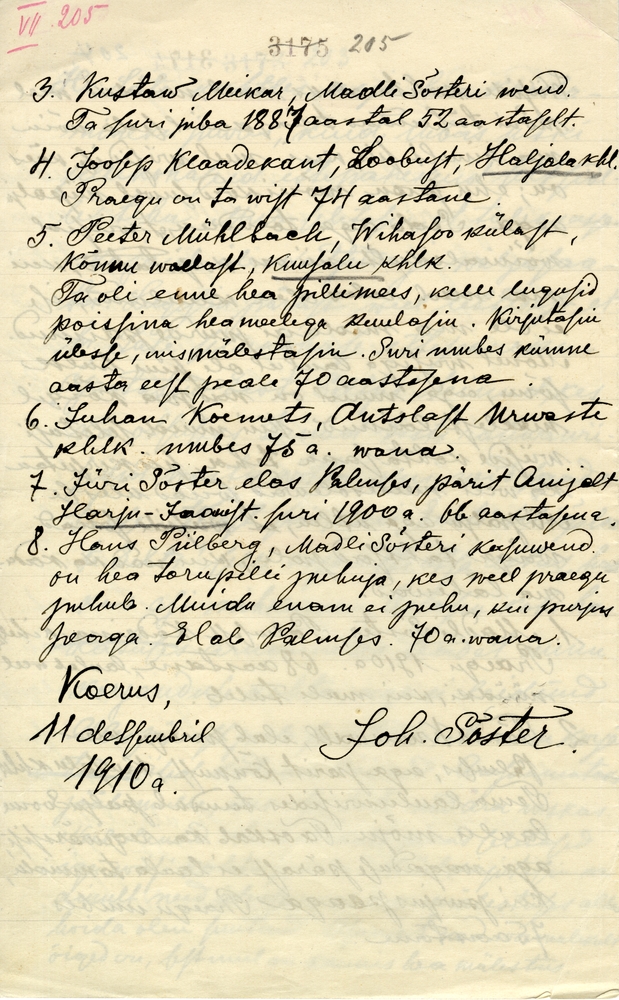 VII 205
3175 205
3. Kustaw Meikar, Madli Sösteri wend.
Ta suri juba 1887 aastal 52 aastaselt.
4. Joosep Klaadekant, Loobust, Haljala khl.
Praegu on ta wist 74 aastane.
5. Peeter Mühlbach, Wihasoo külast,
Kõnnu wallast, Kuusalu khlk.
Ta oli enne hea pillimees, kelle lugusid
poissina heameelega kuulasin. Kirjutasin
ülesse, mis mälestasin. Suri umbes kümne
aasta eest peale 70 aastasena.
6. Juhan Koemets, Antslast Urwaste
khlk. umbes 75 a. wana.
7. Jüri Söster elas Palmses, pärit Anijalt
Harju-Jaanist. suri 1900 a. 66 aastasena.
8. Hans Piilberg, Madli Sösteri kasuwend.
on hea torupilli puhuja, kes weel praegu
puhub. Muidu enam ei puhu, kui purjus
peaga. Elab Palmses. 70 a. wana.
Koerus,
11 detsembril
Joh. Söster.
1910 a.